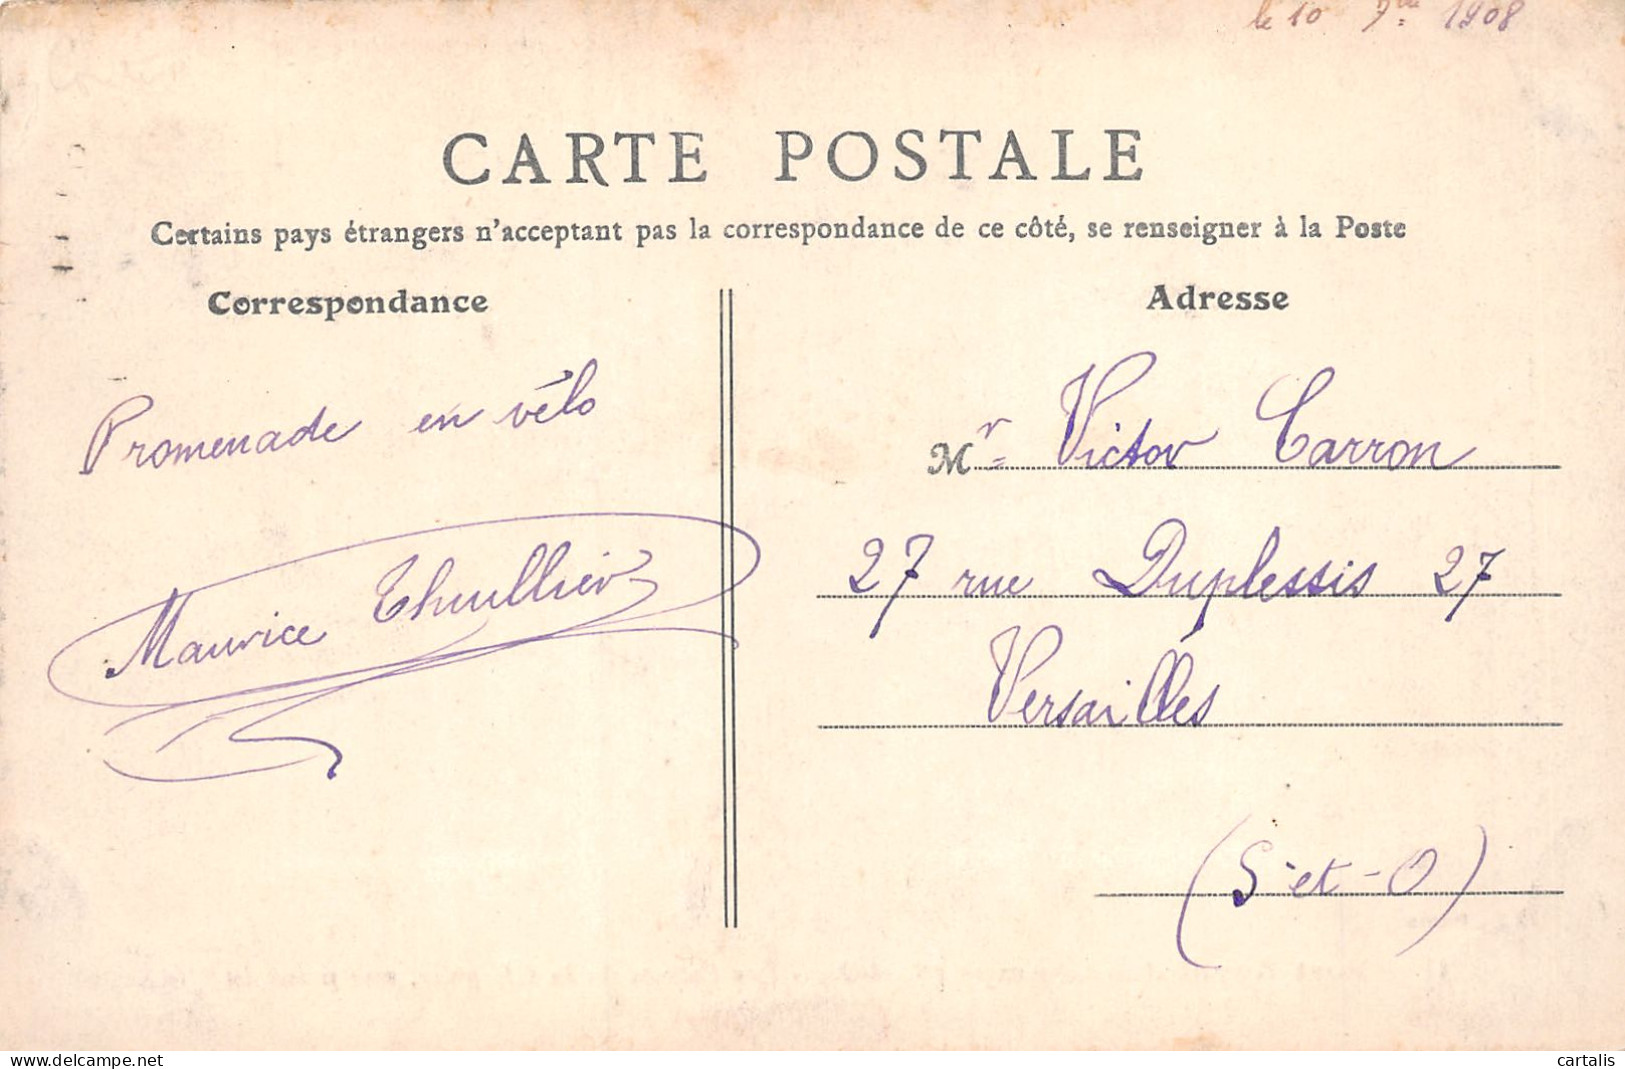 le 10 7bre 1908
CARTE POSTALE
Certains pays étrangers n'acceptant pas la correspondance de ce côté, se renseigner à la Poste
Correspondance
Promenade en vélo
Maurice Thuillier
Adresse
Mr Victor Carron
27 rue Duplessis 27
Versailles
(S-et-O)
delcampe.net
cartalis